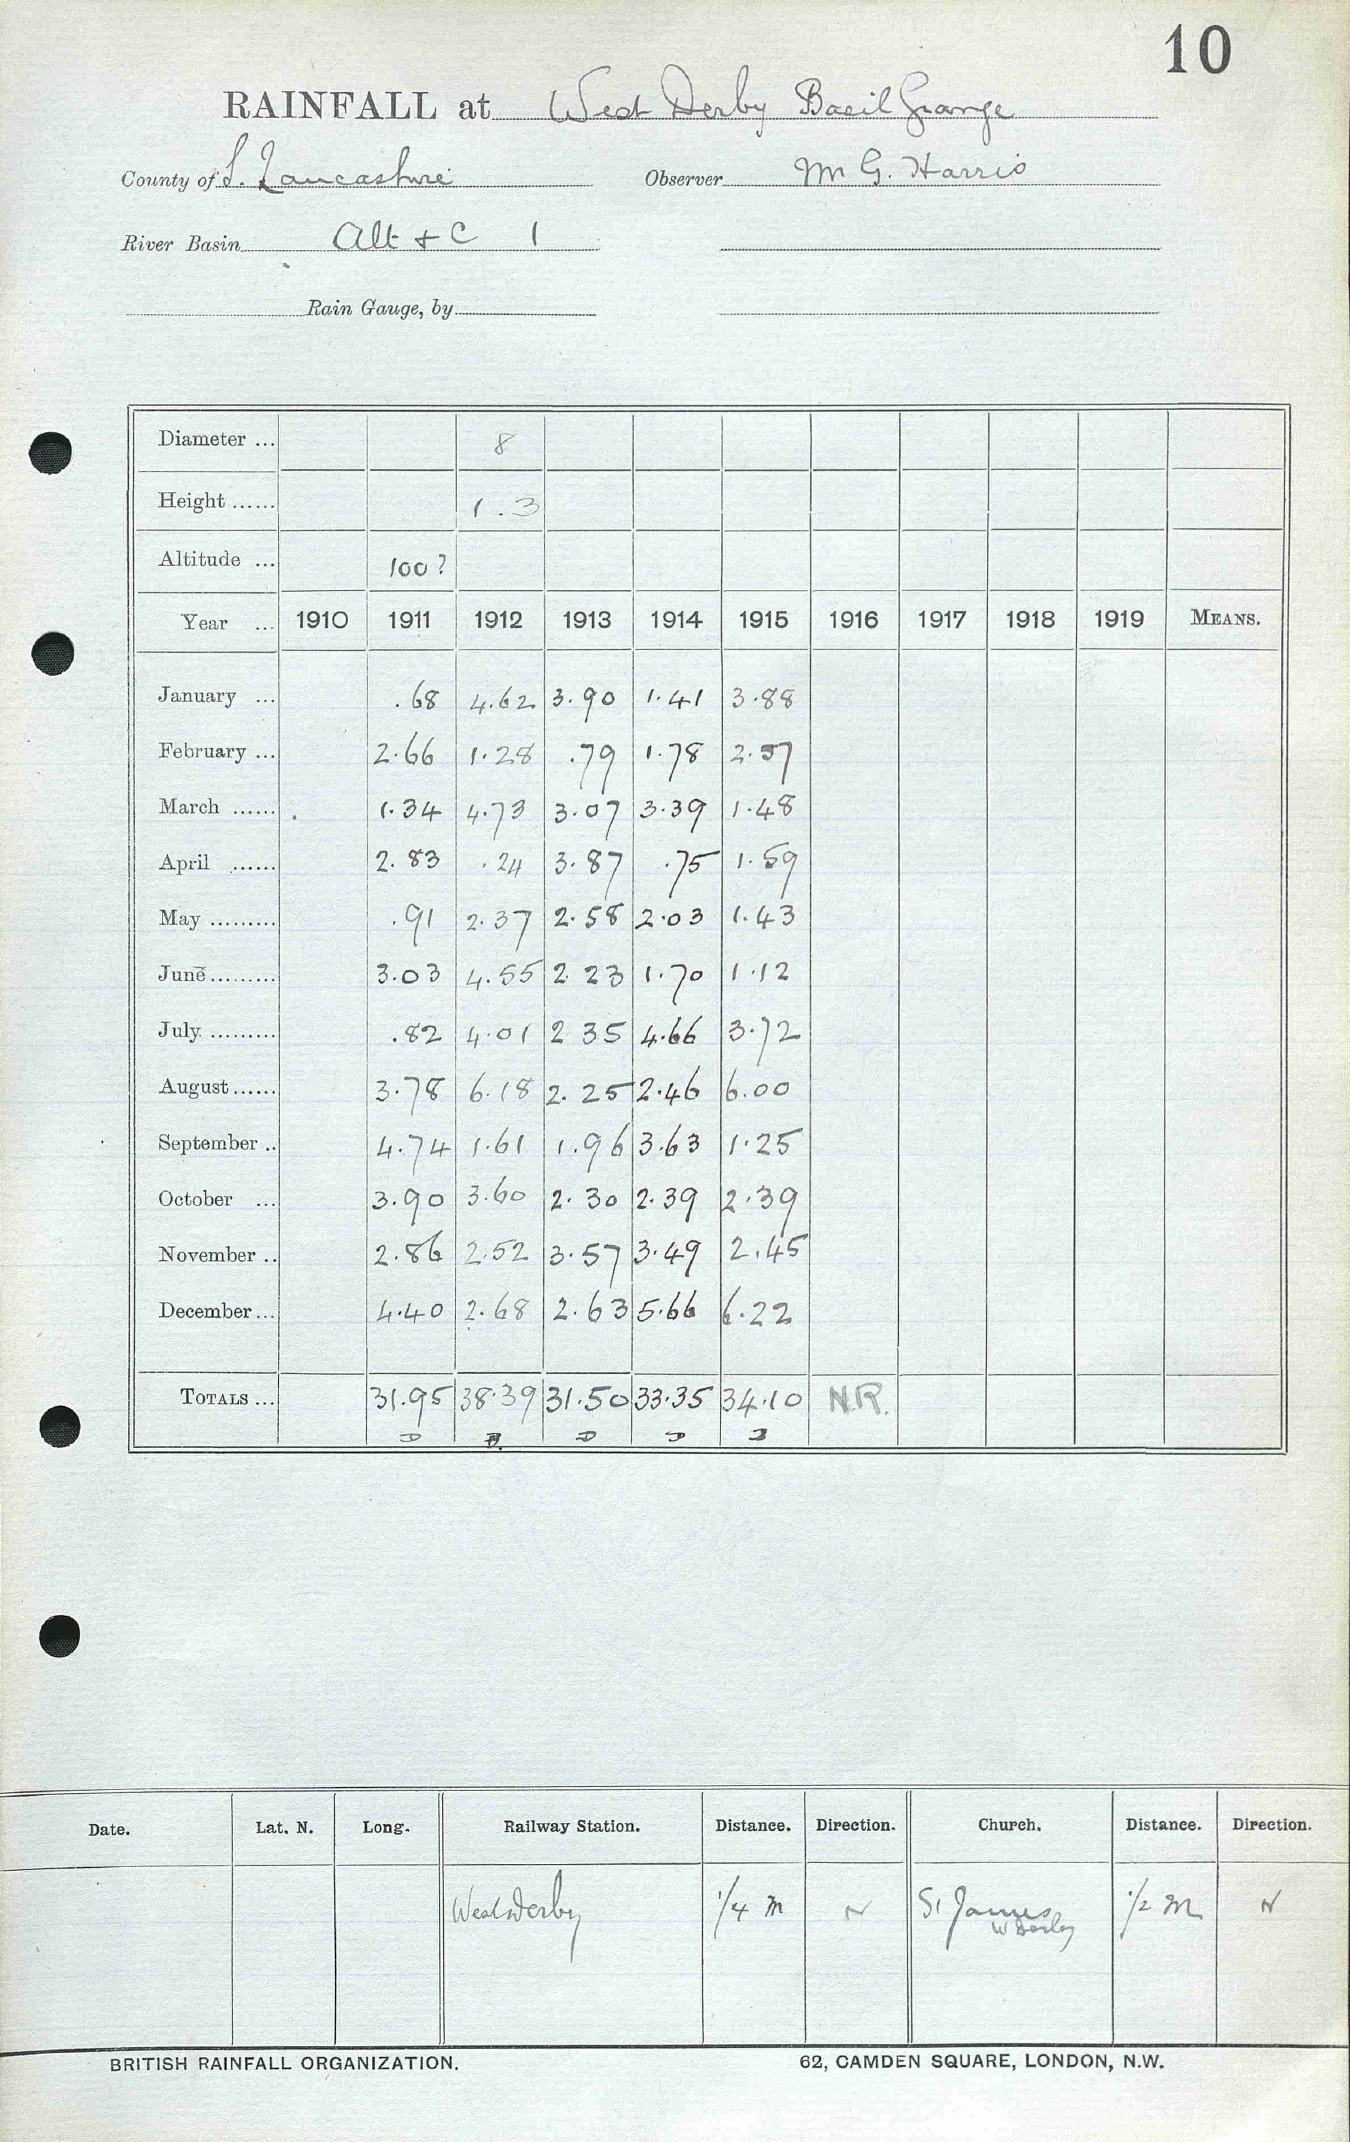 10
RAINFALL at West Derby Basil Grange
County of S. Lancashire Observer M G. Harris
River Basin Alt + C 1
Rain Gauge, by
Diameter ... 8
Height ...... 1.3
Altitude ... 100?
Year ... 1910 1911 1912 1913 1914 1915 1916 1917 1918 1919 MEANS.
January ... .68 4.62 3.90 1.41 3.88
February ... 2.66 1.28 .79 1.78 2.57
March ...... 1.34 4.73 3.07 3.39 1.48
April ...... 2.83 .24 3.87 .75 1.59
May ......... .91 2.37 2.58 2.03 1.43
June ......... 3.03 4.55 2 23 1.70 1.12
July ......... .82 4.01 2 35 4.66 3.72
August ...... 3.78 6.18 2.25 2.46 6.00
September .. 4.74 1.61 1.96 3.63 1.25
October ... 3.90 3.60 2.30 2.39 2.39
November .. 2.86 2.52 3.57 3.49 2.45
December ... 4.40 2.68 2.63 5.66 6.22
TOTALS ... 31.95 38.39 31.50 33.35 34.10 N.R.
Date. Lat. N. Long. Railway Station. Distance. Direction. Church. Distance. Direction.
West Derby 1/4 m N St James 1/2 m N
W Derby
BRITISH RAINFALL ORGANIZATION. 62, CAMDEN SQUARE, LONDON, N.W.